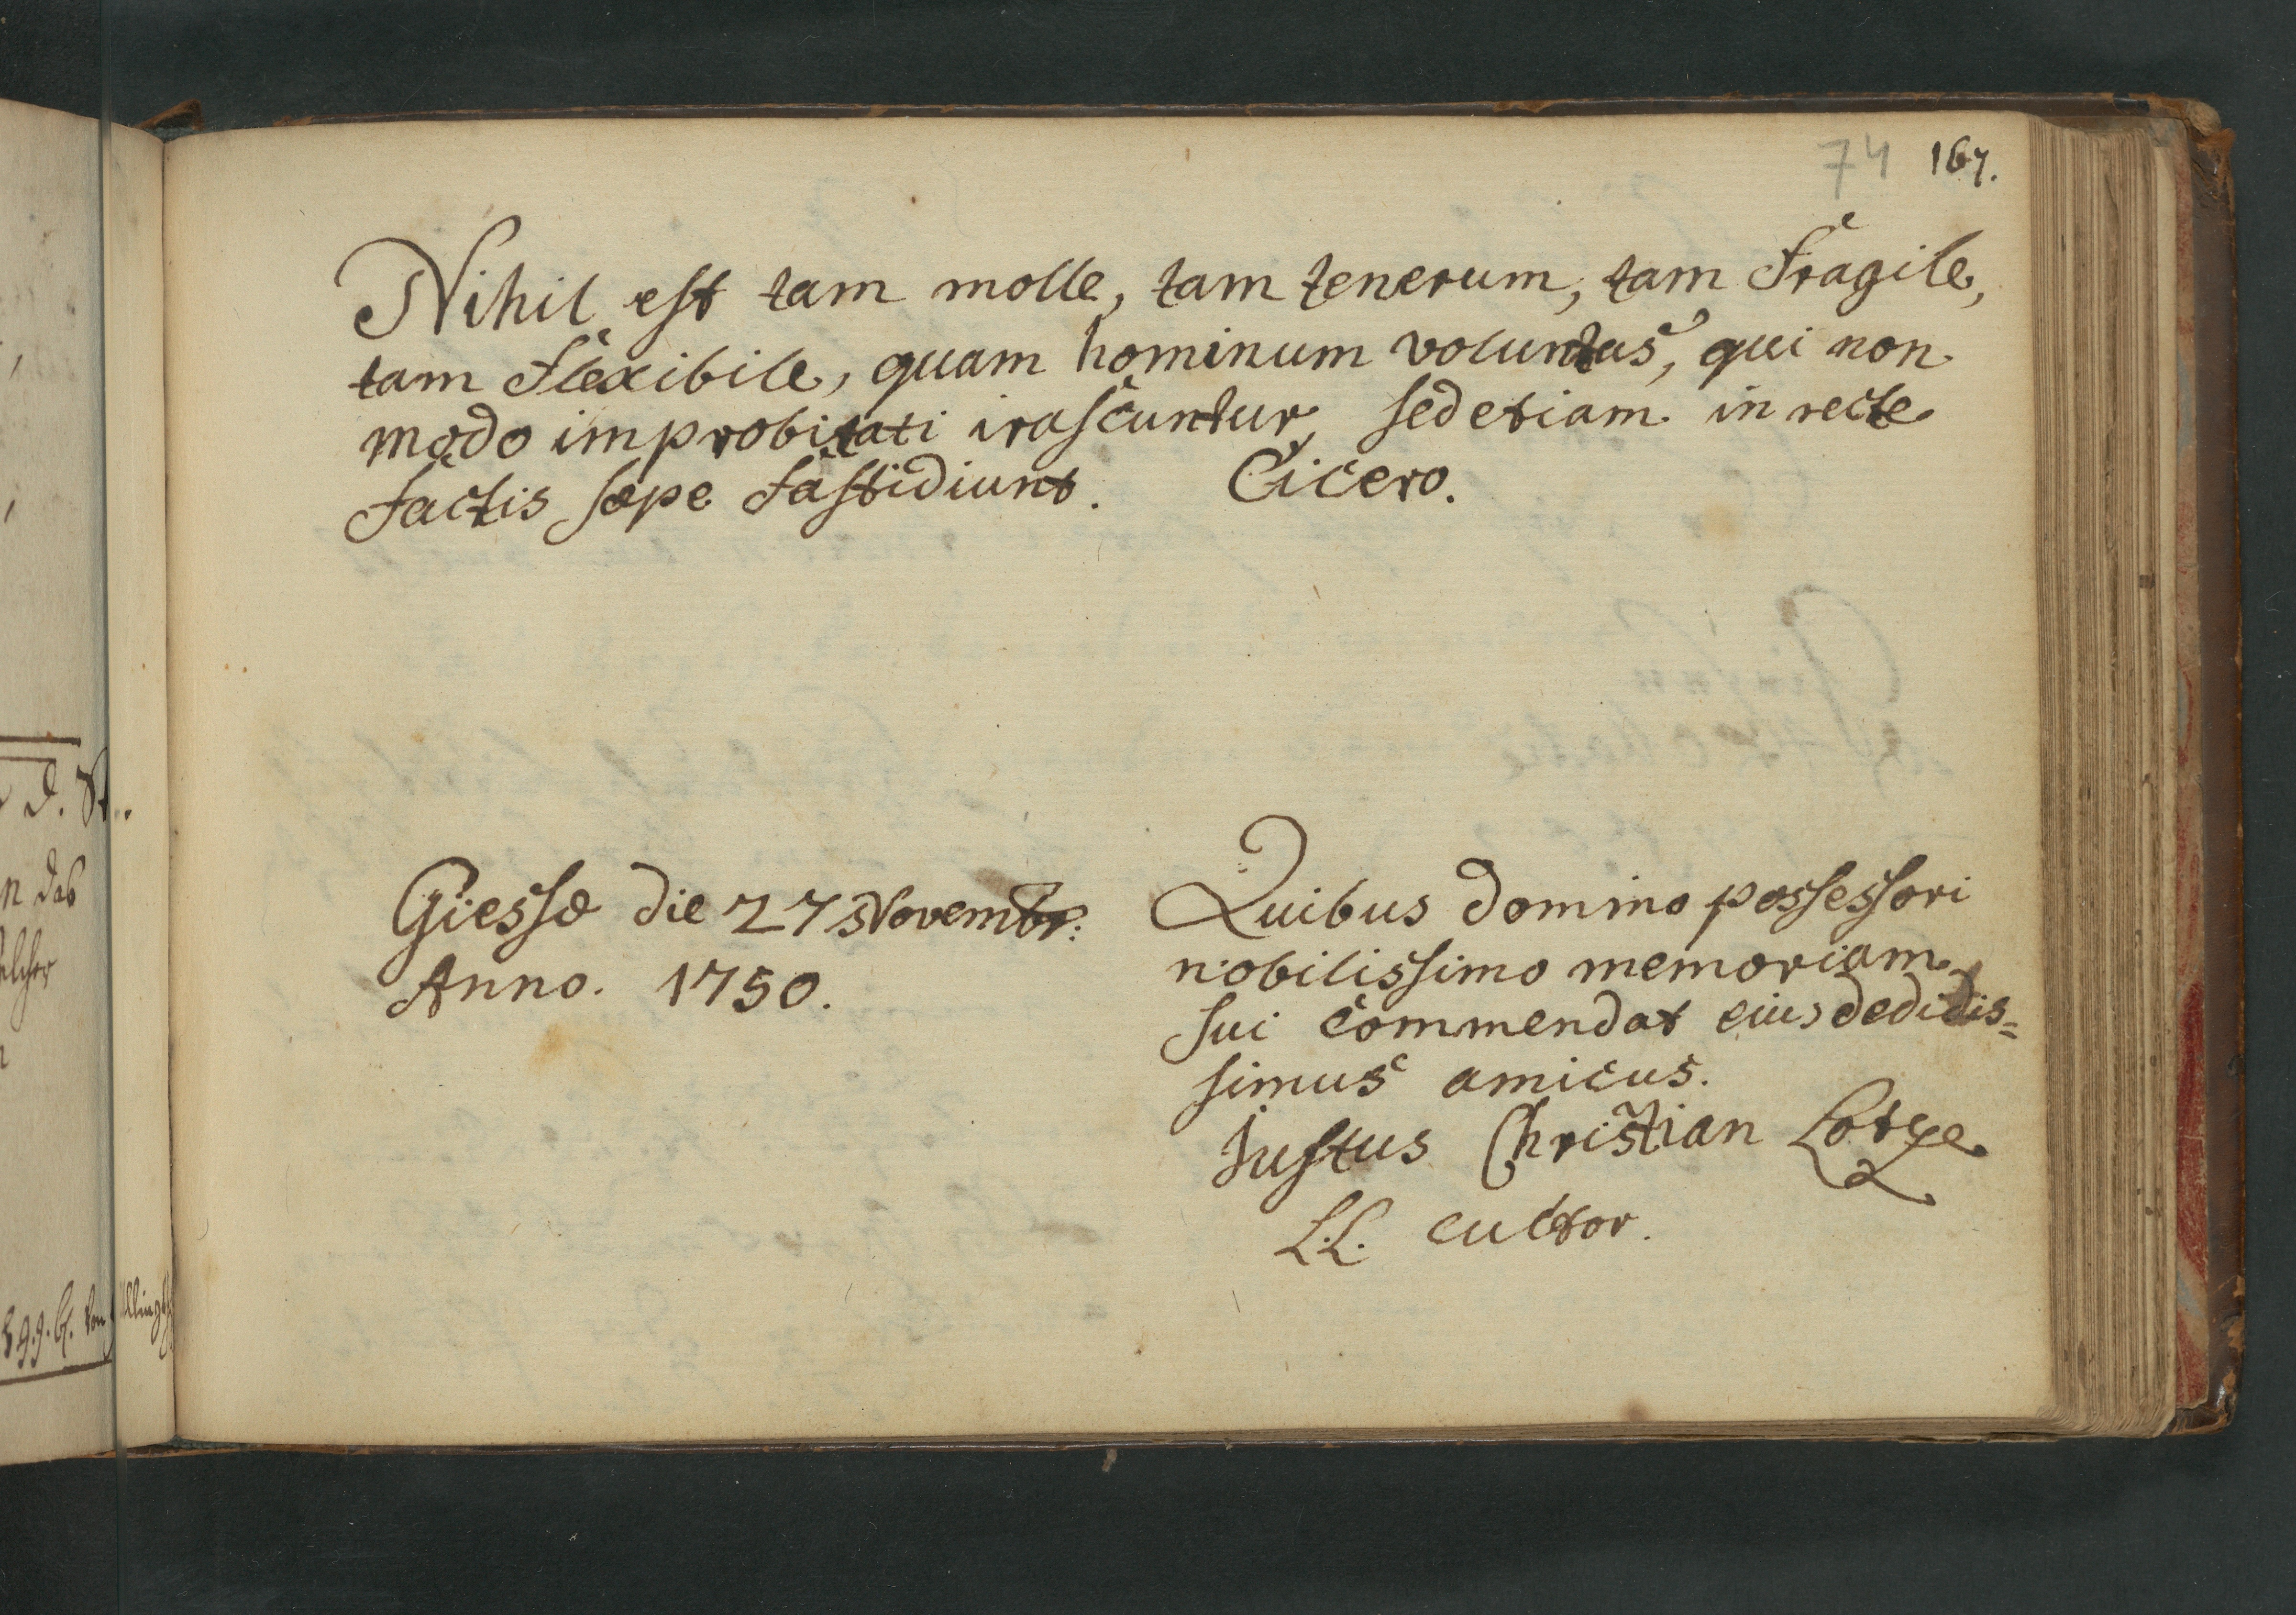 74 167.
Nihil est tam molle, tam tenerum, tam fragile,
tam flexibile, quam hominum voluntas, qui non
modo improbitati irascuntur, sed etiam in recte
factis sæpe fastidiunt. Cicero.
Giessæ die 27 Novembr:
Anno. 1750.
Quibus domino possessori
nobilissimo memoriam
sui commendat eius dedidis=
simus amicus.
Justus Christian
L.L. cultor.
n das